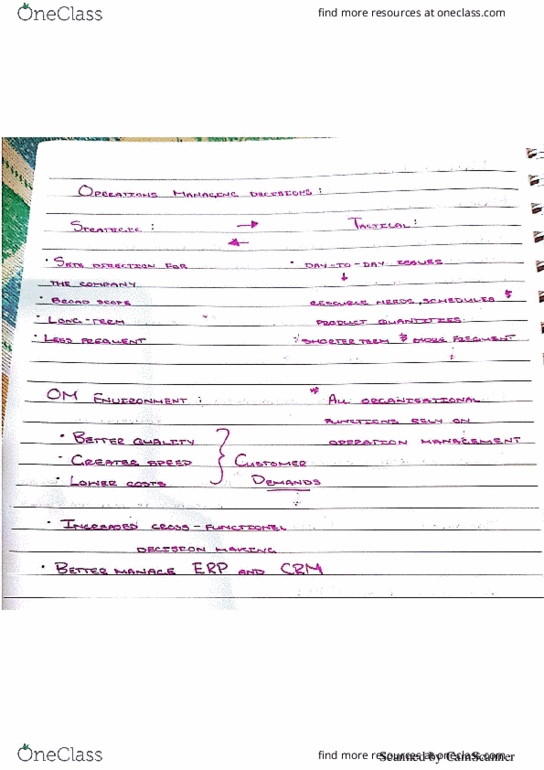 OneClass
find more resources at oneclass.com
Operations Managing decisions :
Strategic : → Tactical :
←
• Sets direction for • day-to-day issues
the company ↓
• Broad scope resource needs, schedules &
• Long-term product quantities
• Less frequent shorter term & more frequent
OM Environment : * All organisational
functions rely on
• Better quality operation management
• Greater speed } Customer
• Lower costs Demands
• Increased cross-functional
decision making
• Better manage ERP and CRM
OneClass
find more resources at oneclass.com
Scanned by CamScanner